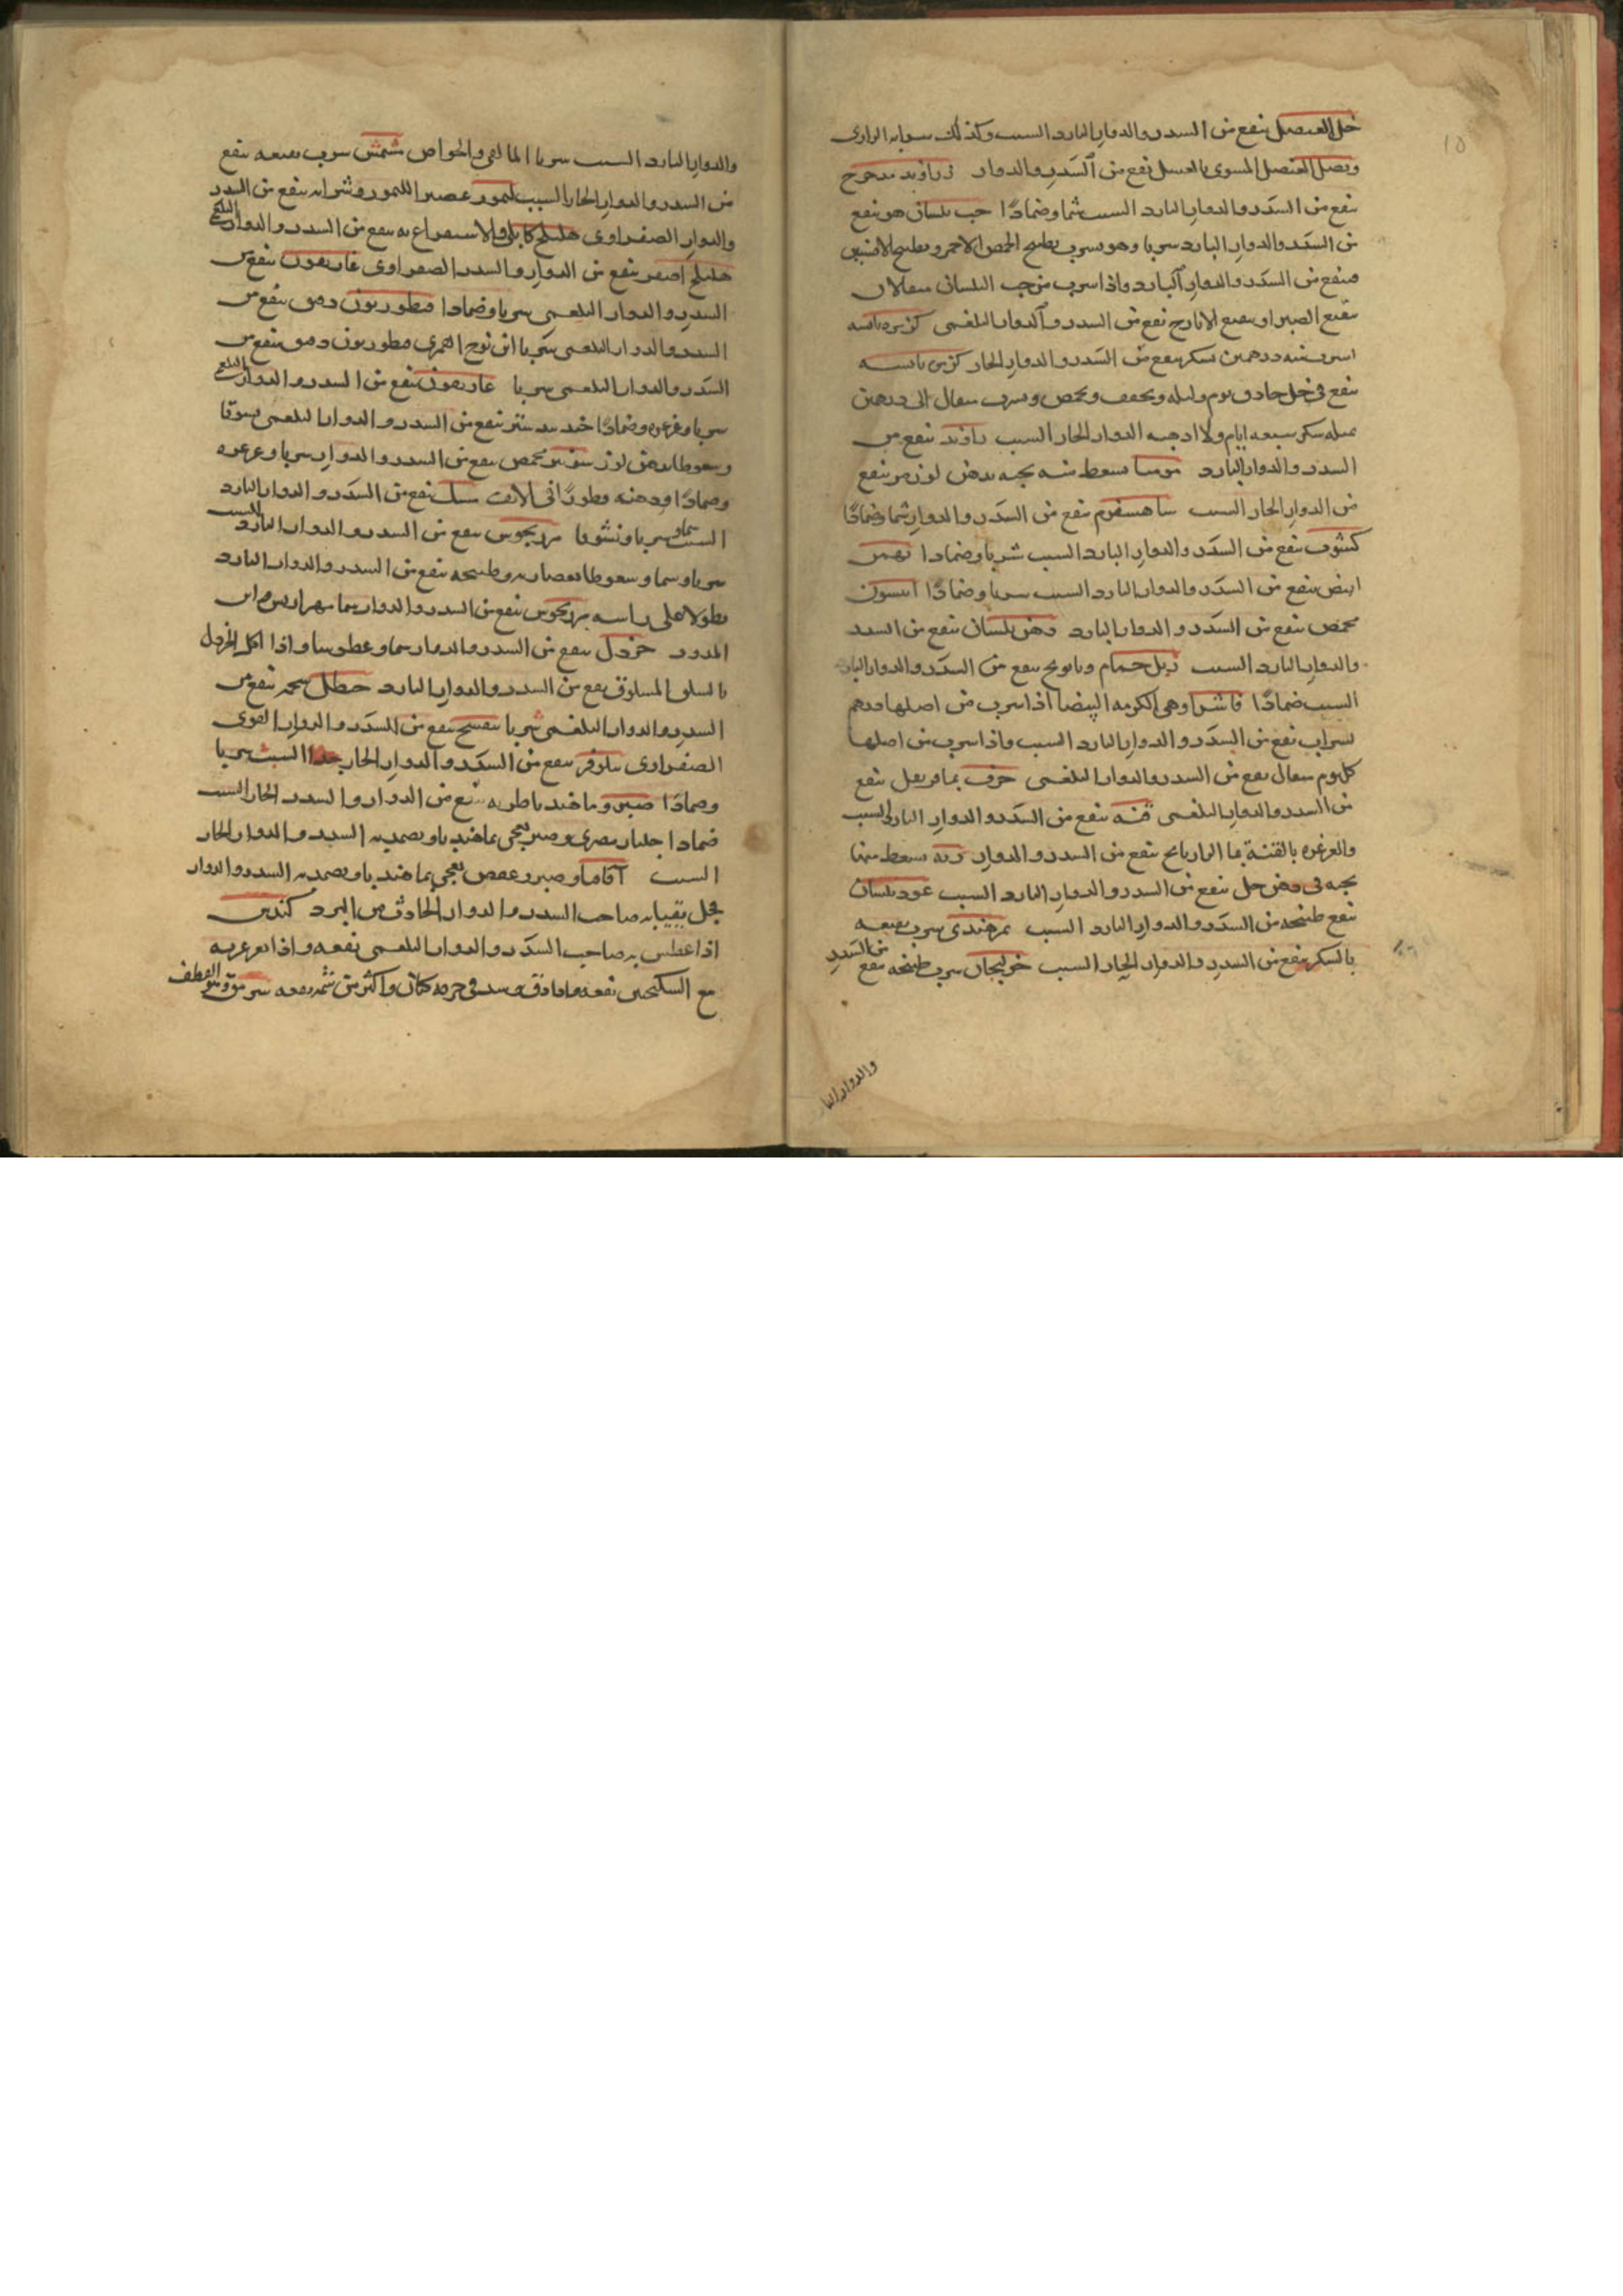 ١٥
خل العنصل ينفع من السدر والدوار البارد السبب وكذلك شرابه
وبصل العنصل المشوي بالعسل نفع من السدر والدوار زراوند مدحرج
ينفع من السدر والدوار البارد السبب شما وضمادا حب بلسان هو ينفع
من السدر والدوار البارد شربا وهو يشرب بطبيخ الحمص الاحمر وبطبيخ الافسنتين
فينفع من السدر والدوار البارد واذا شرب من حب البلسان مثقالان
نقيع الصبر او نقيع الايارج نفع من السدر والدوار البلغمي كزبره يابسه
اشرب منه درهمين بسكر ينفع من السدر والدوار الحار كزبره يابسه
تنقع في خل حاذق يوم وليله ويجفف ويحمص ويشرب مثقال الى درهمين
بمثله سكر سبعه ايام ولاا اذهبه الدوار الحار السبب راوند ينفع من
السدر والدوار البارد موميا يسعط منه بحبه بدهن لوز مر ينفع
من الدوار الحار السبب شاهسفرم ينفع من السدر والدوار شما وضمادا
كشوث ينفع من السدر والدوار البارد السبب شربا وضمادا بهمن
ابيض ينفع من السدر والدوار البارد السبب شربا وضمادا انيسون
محمص ينفع من السدر والدوار البارد دهن بلسان ينفع من السدر
والدوار البارد السبب زبل حمام وبابونج ينفع من السدر والدوار البارد
السبب ضمادا فاشرا وهي الكرمه البيضا اذا شرب من اصلها درهم
بشراب نفع من السدر والدوار البارد السبب واذا شرب من اصلها
كل يوم مثقال نفع من السدر والدوار البلغمي حرف بماء ينفع
من السدر والدوار البلغمي قنه ينفع من السدر والدوار البارد السبب
والغرغره بالقنة بماء الرازيانج ينفع من السدر والدوار يسعط منها
بحبه في دهن خل ينفع من السدر والدوار البارد السبب عود بلسان
ينفع طبيخه من السدر والدوار البارد السبب تمر هندي شرب نقيعه
بالسكر ينفع من السدر والدوار الحار السبب خولنجان شرب طبيخه ينفع من السدر
والدوار البا
والدوار البارد السبب شربا المالقي والخواص مشمش شرب نقيعه ينفع
من السدر والدوار الحار السبب ليمون عصير الليمون وشرابه ينفع من السدر
والدوار الصفراوي هليلج كابلي والاستفراغ به ينفع من السدر والدوار البلغمي
هليلج اصفر ينفع من الدوار والسدر الصفراوي غاريقون ينفع من
السدر والدوار البلغمي شربا وضمادا قنطوريون دقيق ينفع من
السدر والدوار البلغمي شربا قنطوريون دقيق ينفع من
السدر والدوار البلغمي شربا غاريقون ينفع من السدر والدوار البلغمي
شربا وغرغره وضمادا جند بيدستر ينفع من السدر والدوار البلغمي
وسعوطا بدهن لوز شونيز محمص ينفع من السدر والدوار شربا وغرغره
وضمادا ودهنه قطورا في الانف مسك ينفع من السدر والدوار البارد
السبب شما وشربا ونشوقا مرزنجوش ينفع من السدر والدوار البارد السبب
شربا وشما وسعوطا بعصارته وطبيخه ينفع من السدر والدوار البارد
نطولا على راسه مرزنجوش ينفع من السدر والدوار شما
خردل ينفع من السدر والدوار شما وعطوسا واذا اكل الخردل
بالسلق المسلوق ينفع من السدر والدوار البارد حنظل شحمه ينفع من
السدر والدوار البلغمي شربا بنفسج ينفع من السدر والدوار القوي
الصفراوي نيلوفر ينفع من السدر والدوار الحار السبب شربا
وضمادا صبر وما هندبا طريه ينفع من الدوار والسدر الحار السبب
ضمادا جلنار مصري وصبر يعجن بما هندبا ويضمد به السدر والدوار الحار
السبب اقاقيا وصبر وعفص يعجن بما هندبا ويضمد به السدر والدوار
فجل يتقيا به صاحب السدر والدوار الحادث من البرد كندس
اذا عطس به صاحب السدر والدوار البلغمي نفعه واذا تغرغر به
مع السكنجبين نفعه واذا دق وشد في خرقه كتان واكثر من شمه نفعه